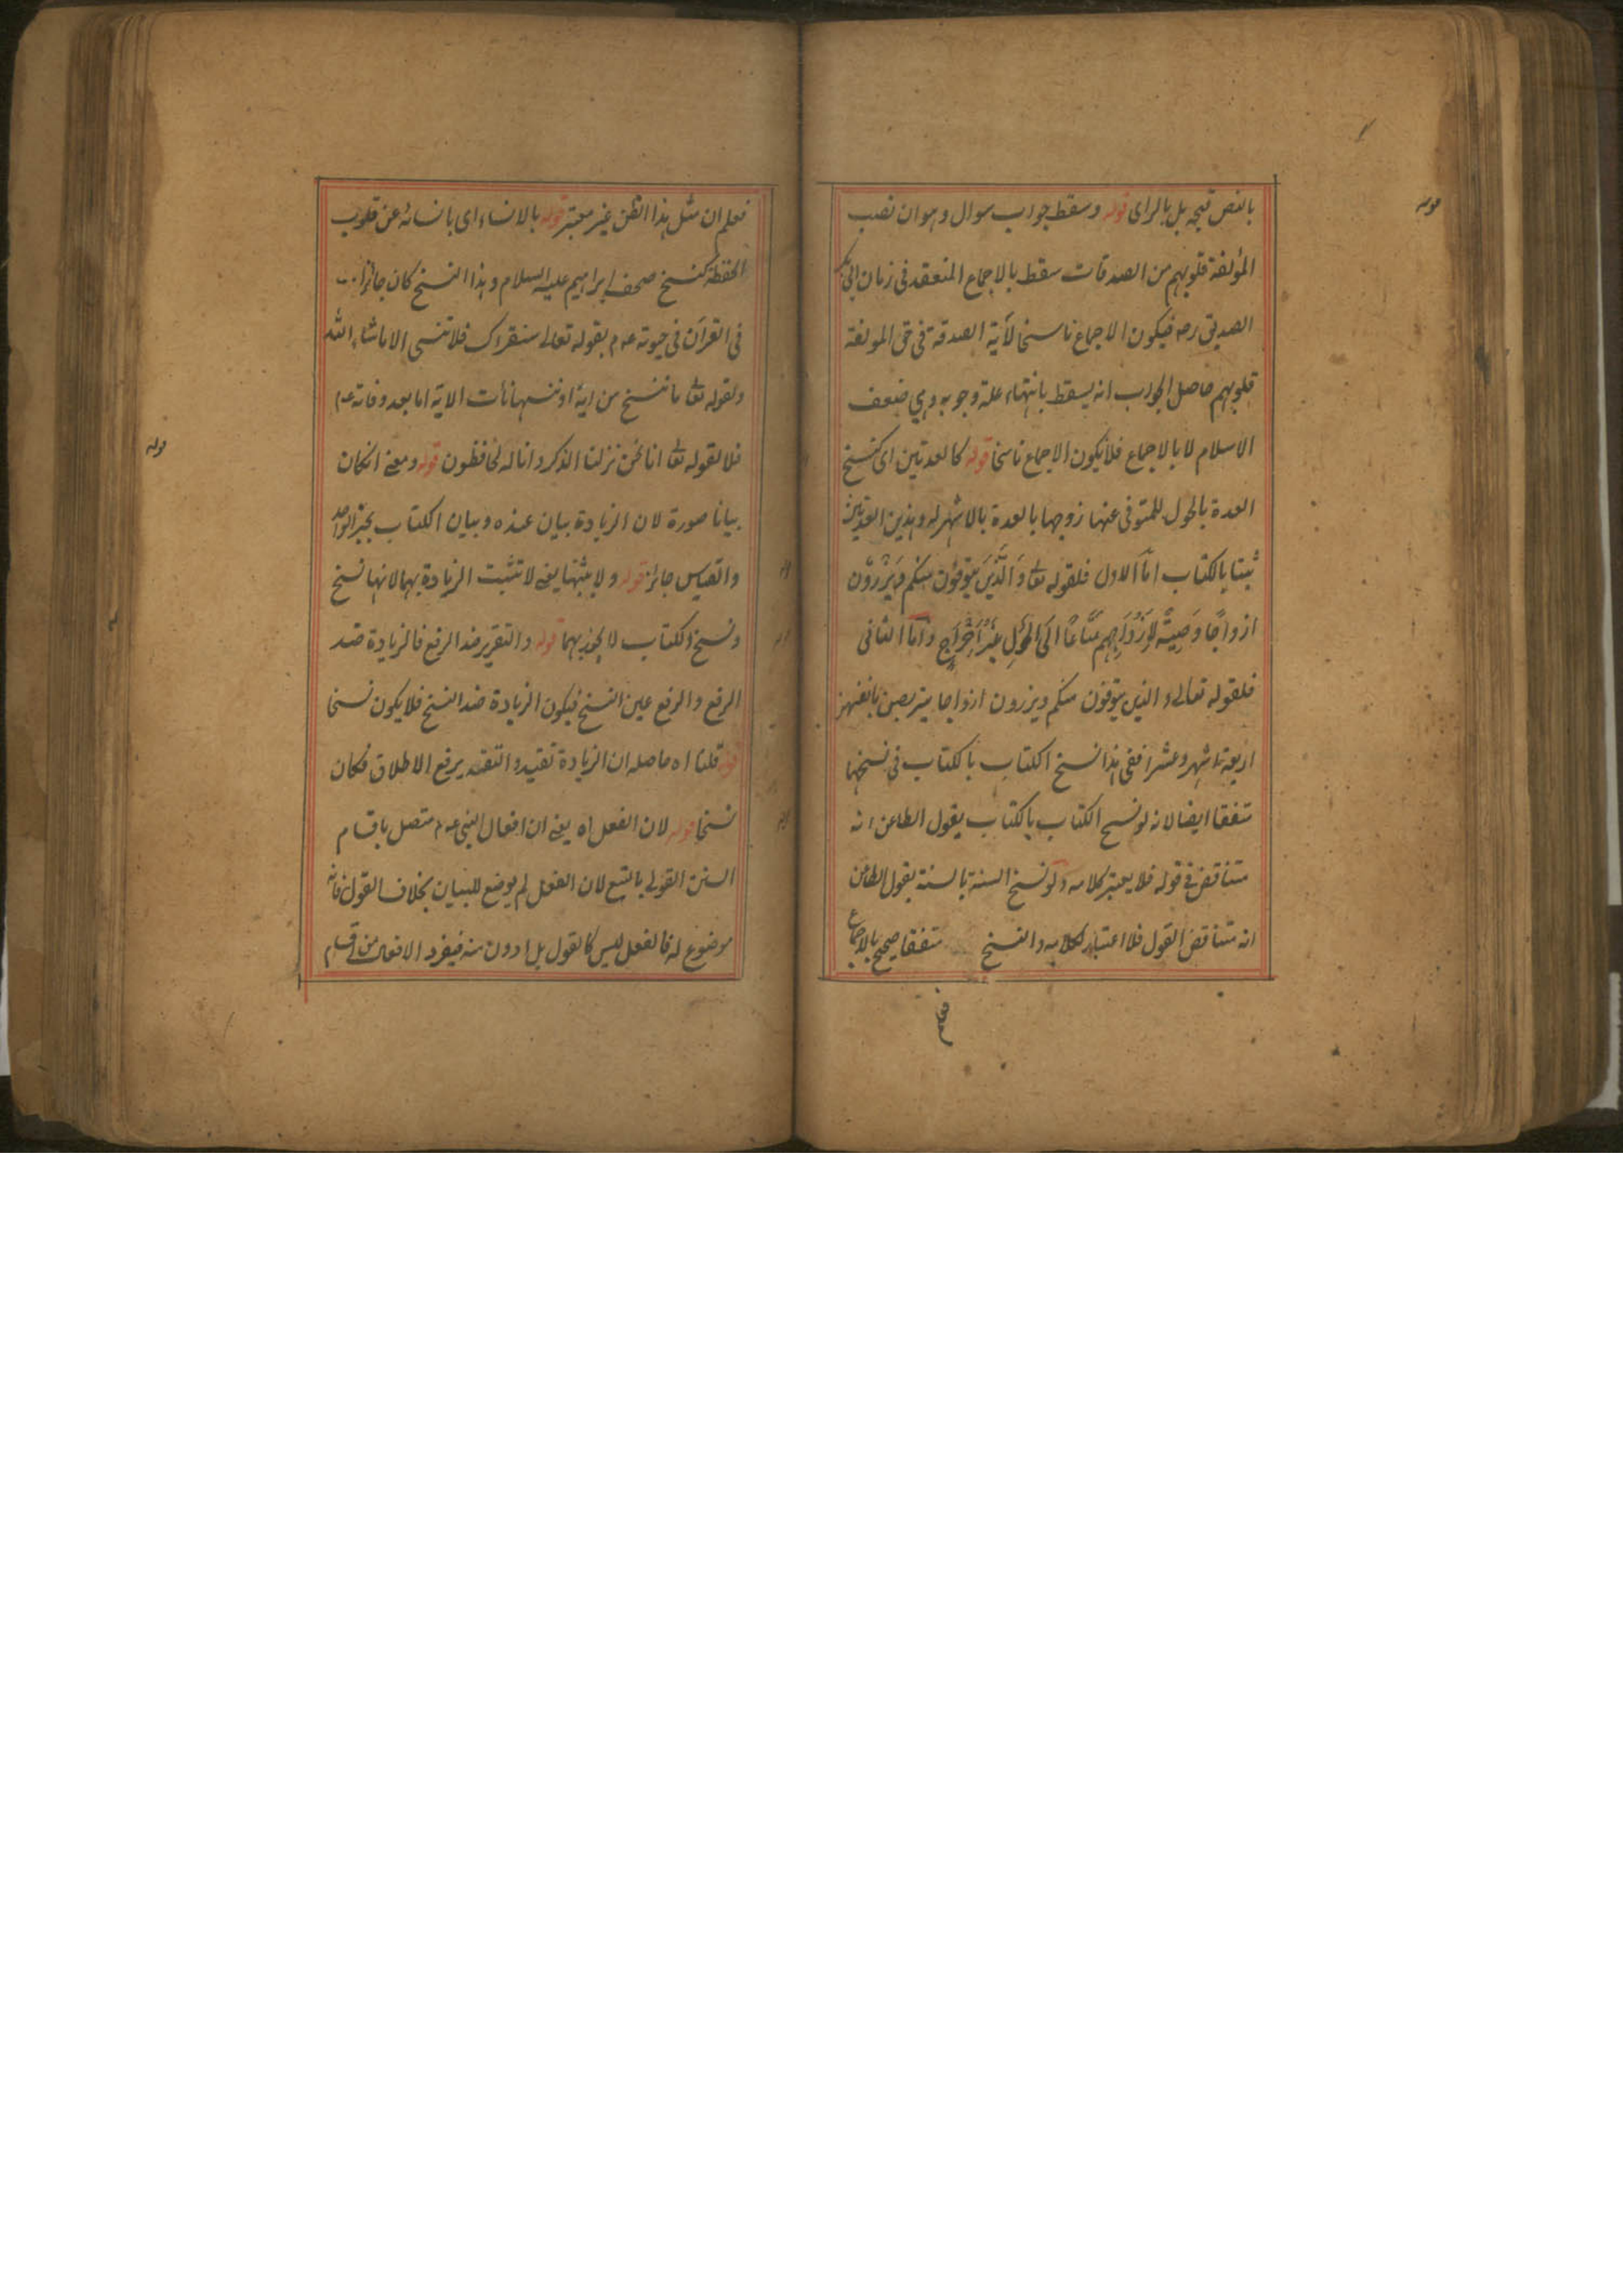 بالنص قبحه بل بالرای قوله وسقط جواب سوال وهو ان نصب
المؤلفة قلوبهم من الصدقات سقط بالاجماع المنعقد فی زمان ابی بکر
الصدیق رضه فیکون الاجماع ناسخا لآیة الصدقة فی حق المولفة
قلوبهم حاصل الجواب انه یسقط بانتهاء علة وجوبه وهی ضعف
الاسلام لا بالاجماع فلا یکون الاجماع ناسخا قوله کالعدتین ای کنسخ
العدة بالحول للمتوفی عنها زوجها بالعدة بالاشهر له وهذین العدتین
ثبتا بالکتاب اما الاول فلقوله تعا وَالَّذِینَ یتوفون منکم ویذرون
ازواجًا وَصِیَّةً لِأَزْوَاجِهِم مَتَاعًا اِلَی الحَوْلِ غَیْرَ اِخْرَاجٍ وَاَمَّا الثانی
فلقوله تعالی والذین یتوفون منکم ویزرون ازواجا یتربصن بانفسهن
اربعة اشهر وعشرا ففی هذا نسخ الکتاب بالکتاب فی نسخها
متفقا ایضا لانه لو نسخ الکتاب بالکتاب یقول الطاعن انه
متناقض فی قوله فلا یعتبر کلامه ولو نسخ السنة بالسنة یقول الطاعن
انه متناقض القول فلا اعتبار لکلامه والنسخ متفقا صحیح بالاجماع
فعلم ان مثل هذا الظن غیر معتبر قوله بالانساء ای بانسائه عن قلوب
الحفظة کنسخ صحف ابراهیم علیه السلام وهذا النسخ کان جائزا
فی القرآن فی حیوته عه م بقوله تعالی سنقرئک فلا تنسی الا ماشاء الله
ولقوله تعا ما ننسخ من ایة او ننسها نأت الایة اما بعد وفاته عه م
فلا لقوله تعا انا نحن نزلنا الذکر وانا له لحافظون قوله ومعنی ان کان
بیانا صورة لان الزیادة بیان عنده وبیان الکتاب بخبر الواحد
والقیاس جائز قوله ولا یثبتها یعنی لا تثبت الزیادة بهما لانها نسخ
ونسخ الکتاب لا یجوز بهما قوله والتقریر ضد الرفع فالزیادة ضد
الرفع والرفع عین النسخ فیکون الزیادة ضد النسخ فلا یکون نسخا
قوله قلنا اه حاصله ان الزیادة تقیید والتقیید یرفع الاطلاق فکان
نسخا قوله لان الفعل اه یعنی ان افعال النبی عه م متصل باقسام
السنن القولی بالتبع لان الفعل لم یوضع للبیان بخلاف القول فانه
موضوع له فالفعل لیس کالقول بل ادون منه فیفرد الافعال من اقسام